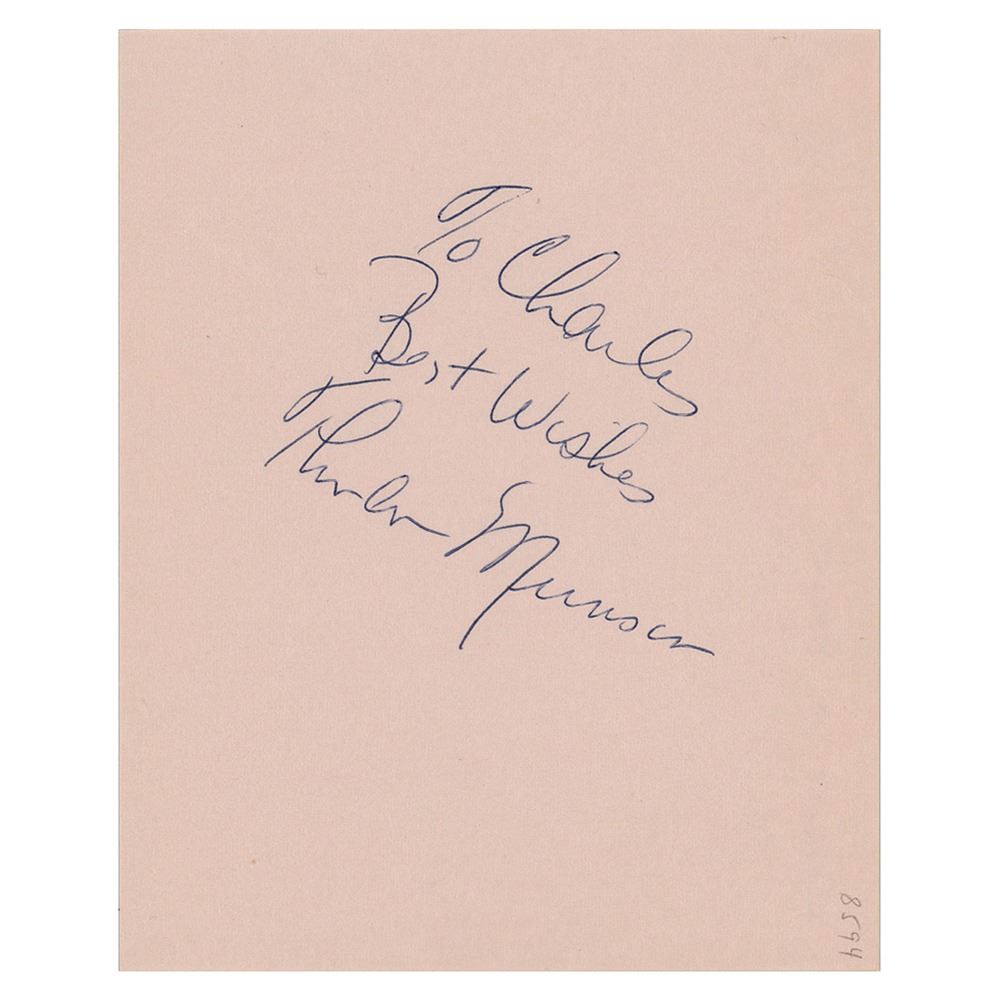 To Charles
Best Wishes
Thurman Munson
8594